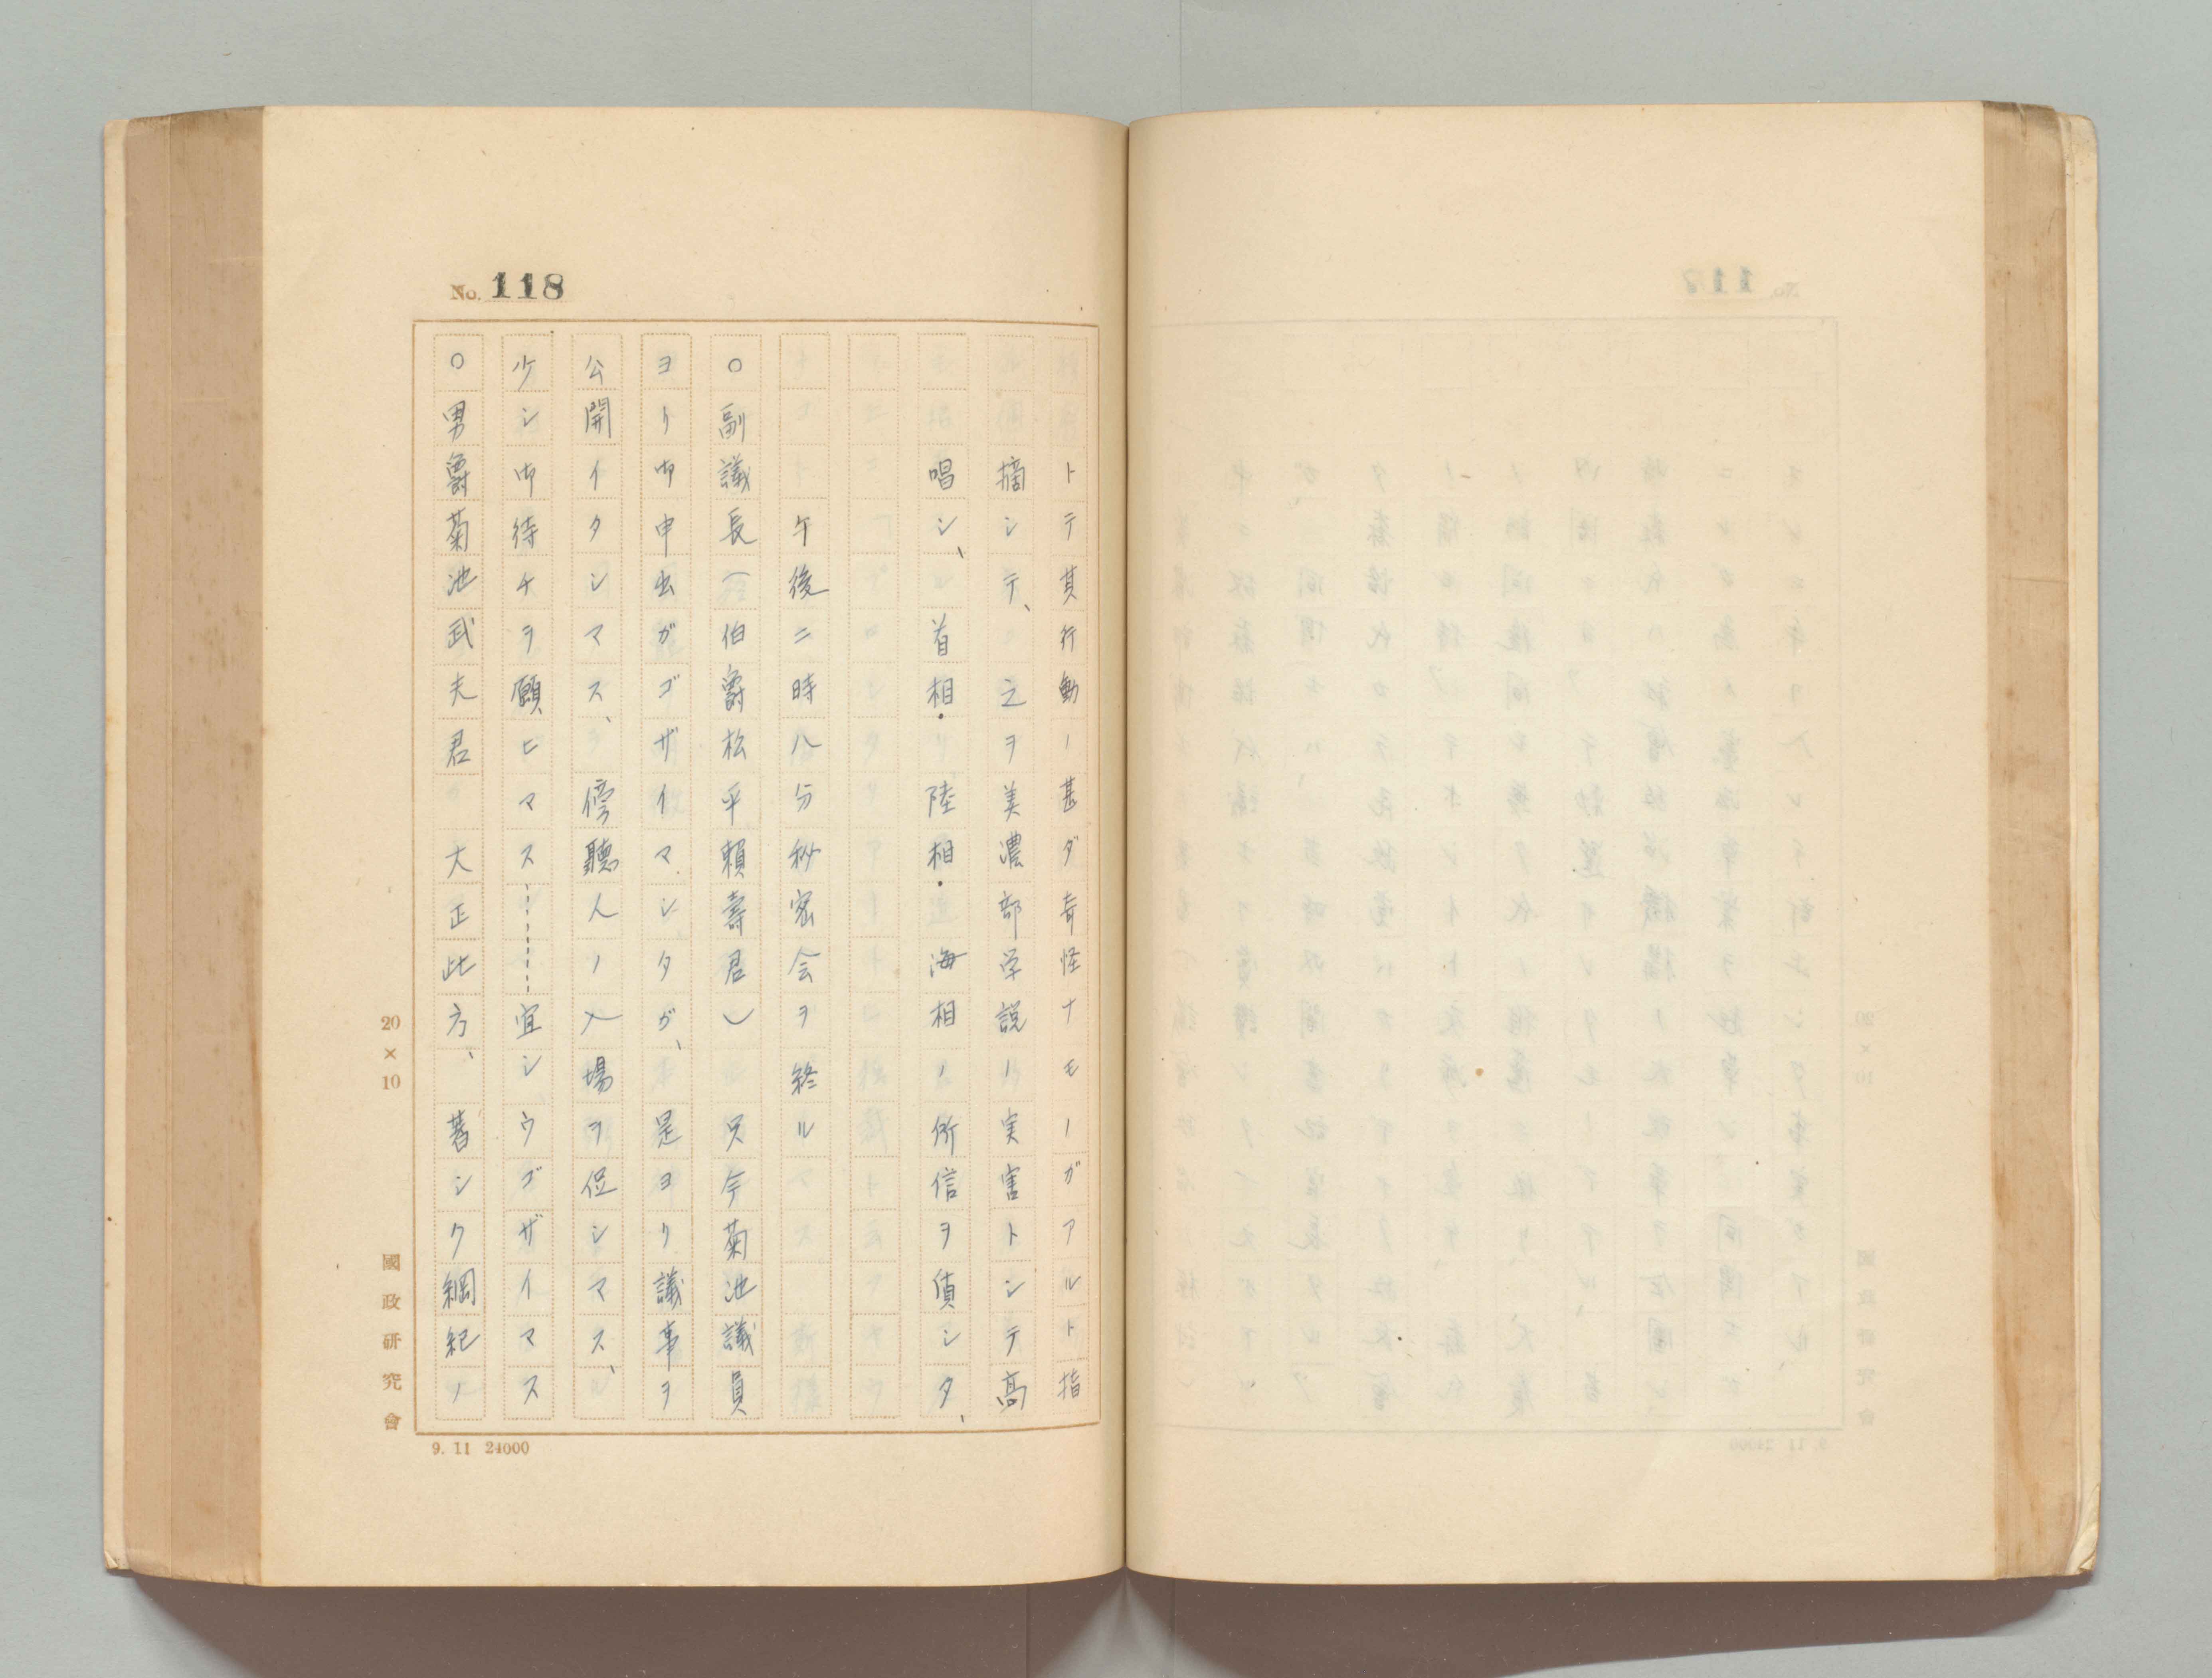 No. 118
トテ其行動ノ甚ダ奇怪ナモノガアルト指
摘シテ、之ヲ美濃部学説ノ実害トシテ高
唱シ、首相・陸相・海相ノ所信ヲ質シタ、
午後二時八分秘密会ヲ終ル
○副議長(伯爵松平頼壽君) 只今菊池議員
ヨリ御申出ガゴザイマシタガ、是ヨリ議事ヲ
公開イタシマス、傍聽人ノ入場ヲ促シマス、
少シ御待チヲ願ヒマス……宜シウゴザイマス
○男爵菊池武夫君 大正此方、著シク綱紀ノ
20×10
國政研究會
9. 11 24000